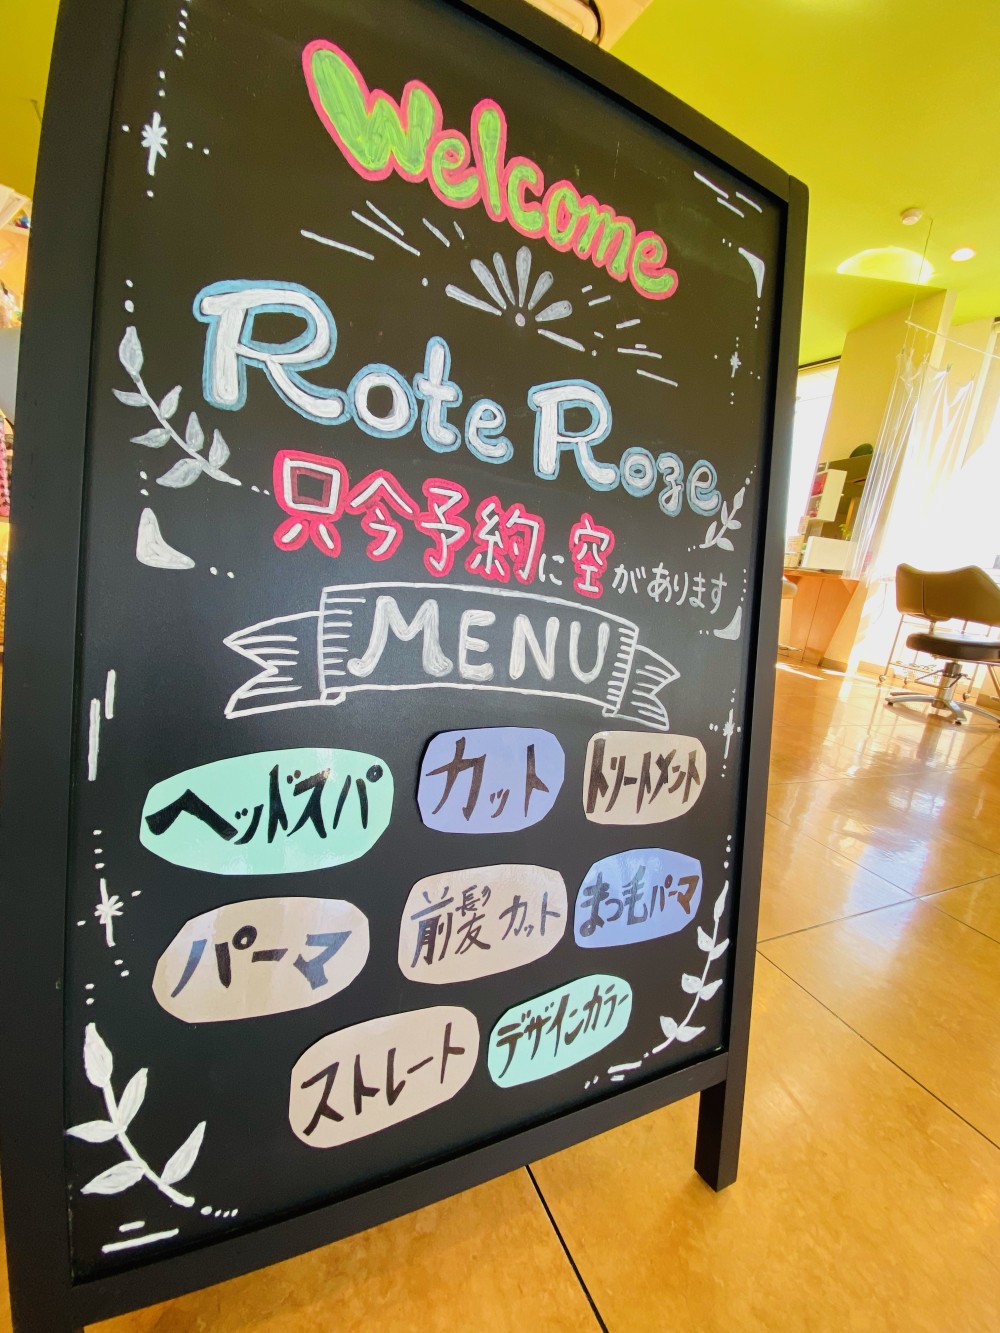 Welcome
Rote Roze
只今予約に空があります
MENU
ヘッドスパ カット トリートメント
パーマ 前髪カット まつ毛パーマ
ストレート デザインカラー